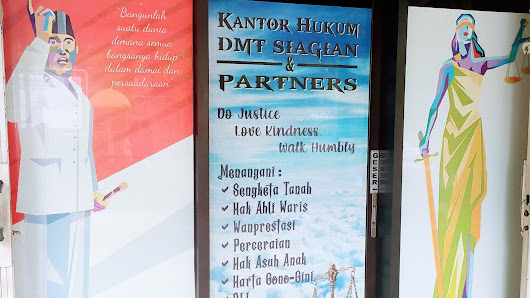 "Bangunlah
suatu dunia
dimana semua
bangsanya hidup
dalam damai dan
persaudaraan.
KANTOR HUKUM
DMT SIAGIAN
&
PARTNERS
Do Justice
Love Kindness
Walk Humbly
Menangani :
✓ Sengketa Tanah
✓ Hak Ahli Waris
✓ Wanprestasi
✓ Perceraian
✓ Hak Asuh Anak
✓ Harta Gono-Gini
GESER